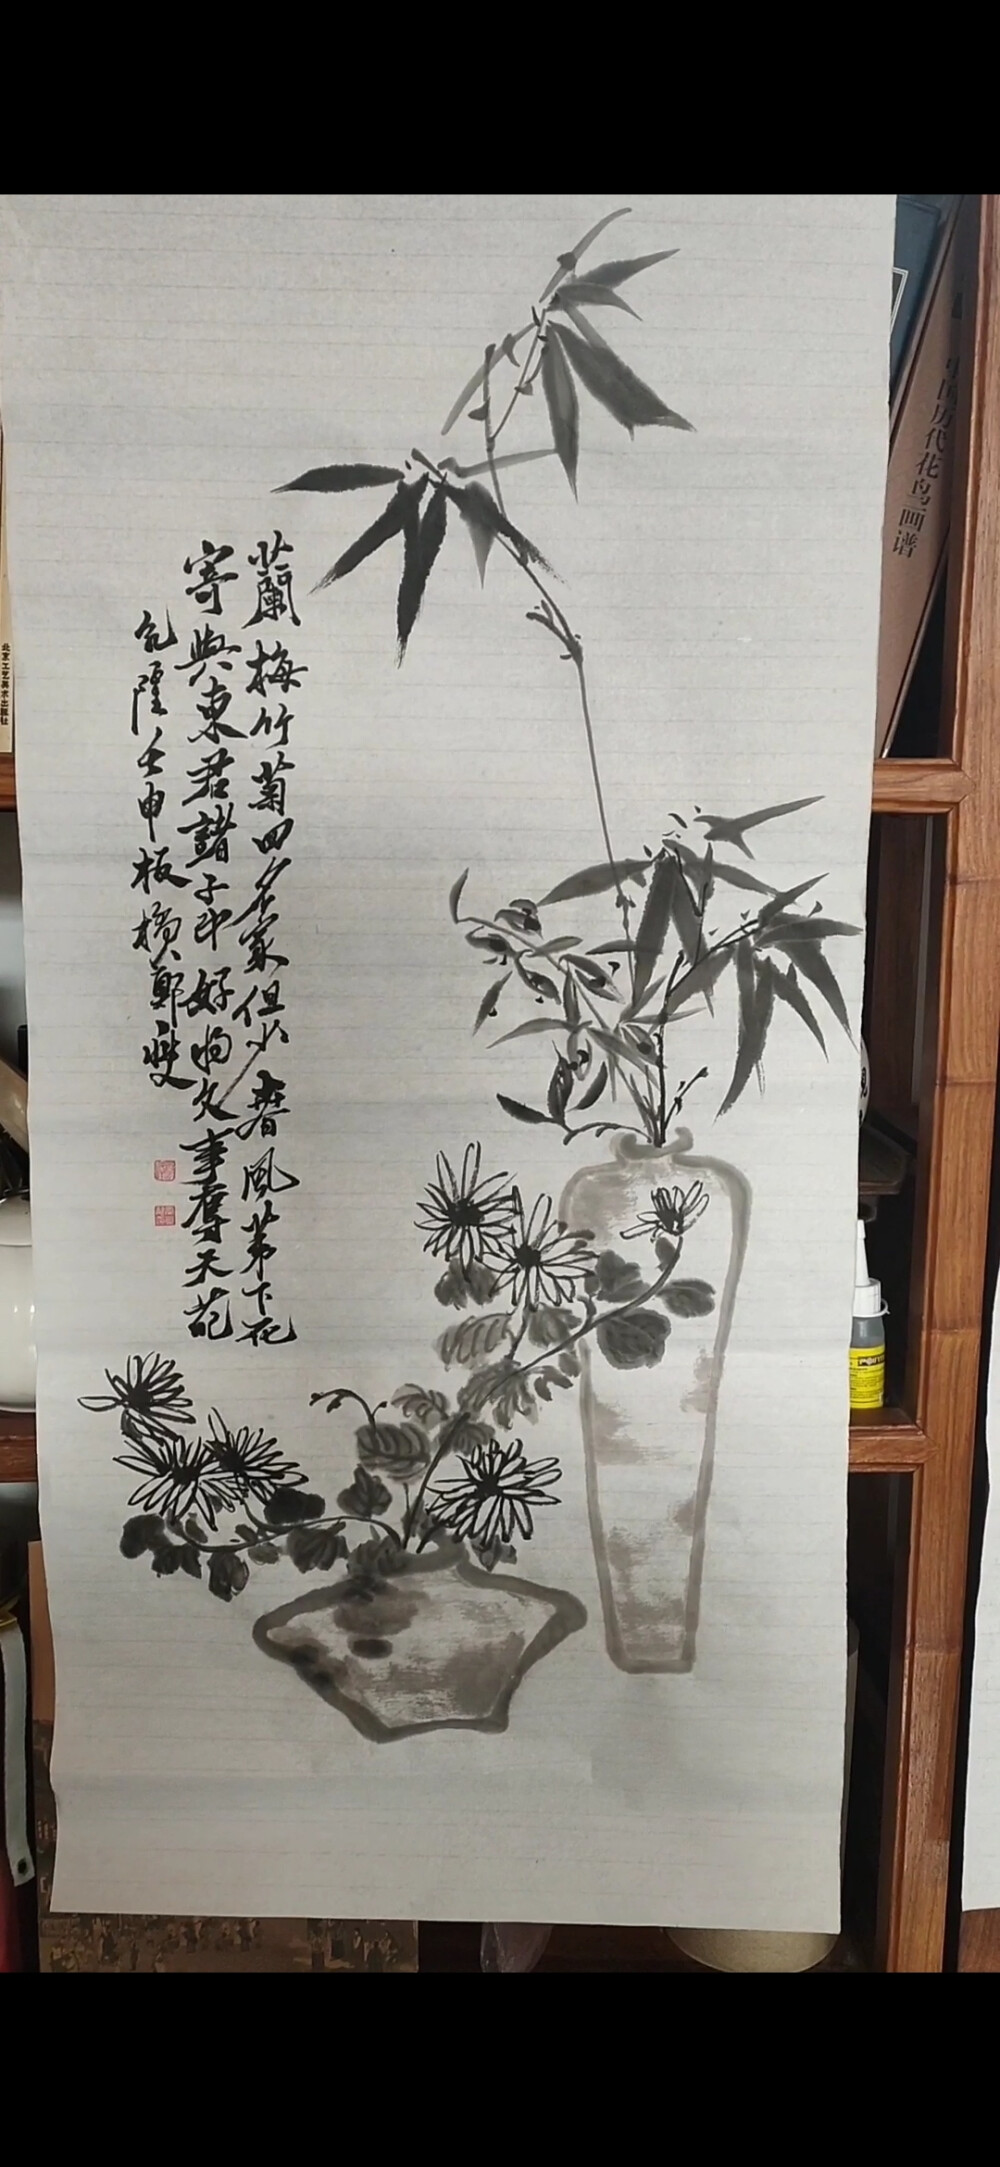 蘭梅竹菊四名家但少春風第下花
寄與東君諸子印好將文事奪天葩
乾隆壬申板橋鄭燮
中国历代花鸟画谱
北京工艺美术出版社